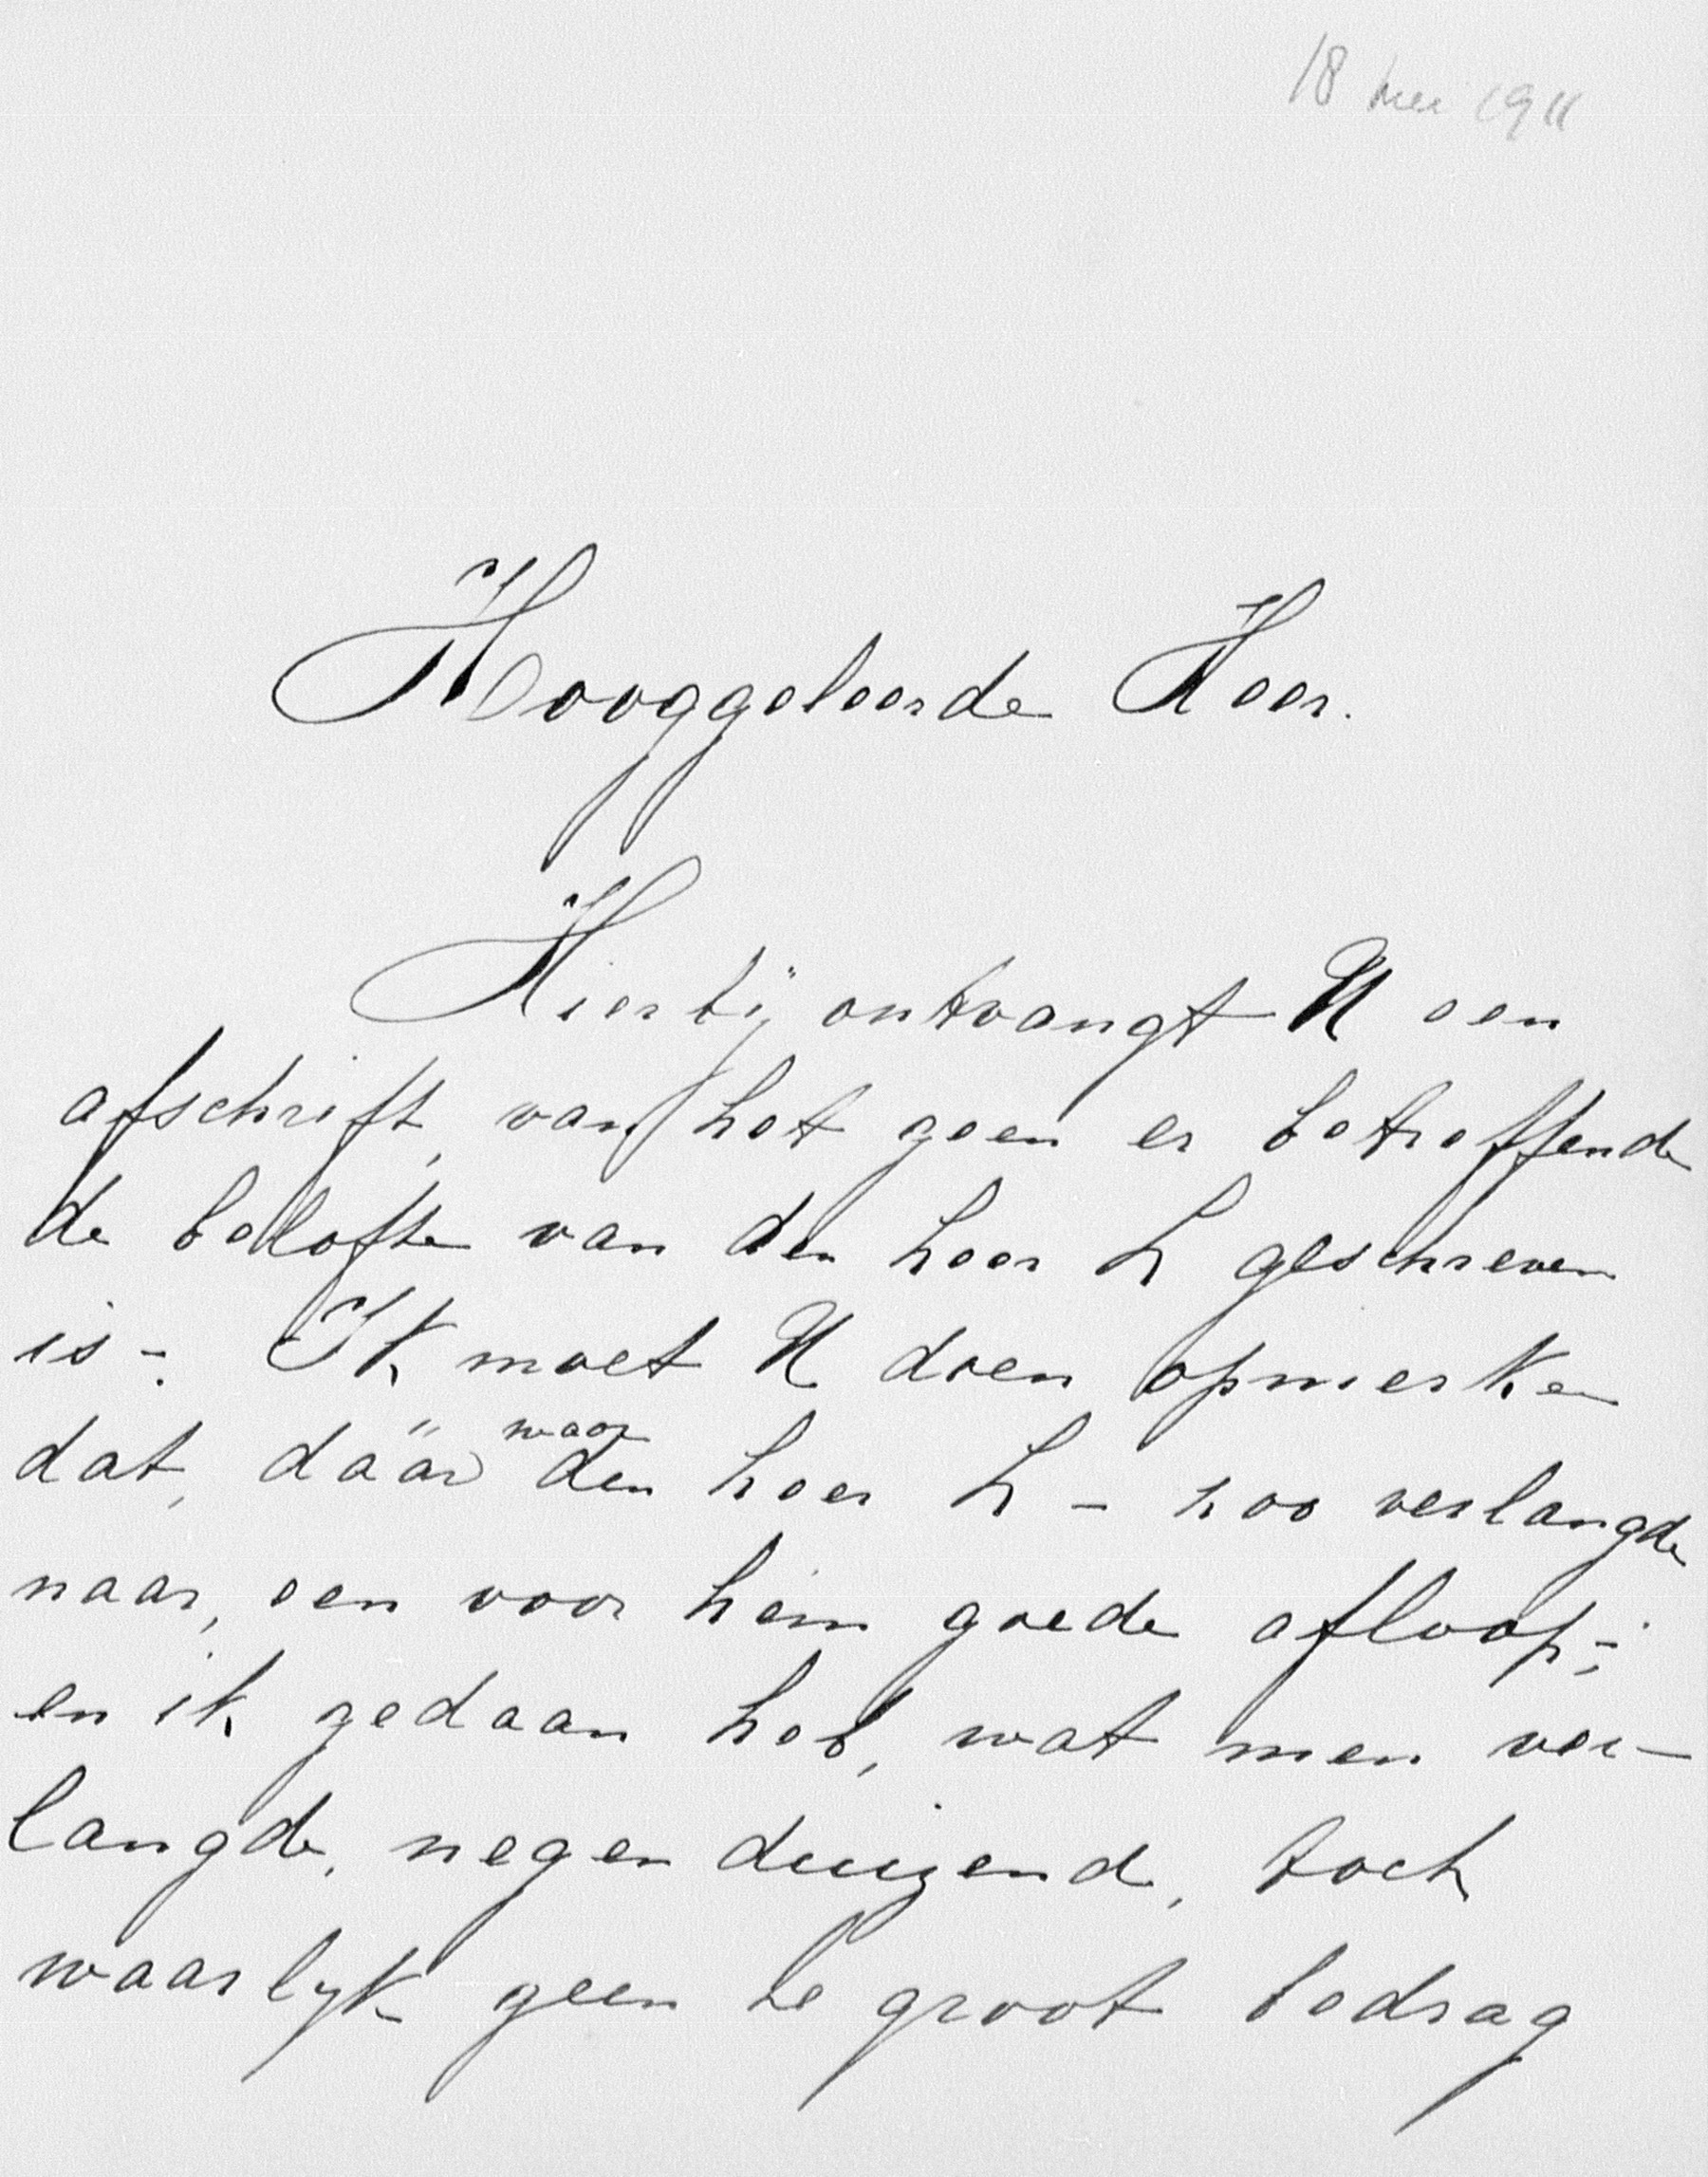 18 mei 1911
Hooggeleerde Heer.
Hierbij ontvangt U een
afschrift, van het geen er betreffende
de belofte van den heer h geschreven
is -. Ik moet U doen opmerken
dat, däar waar den heer h - zoo verlangde
naar, een voor hem goede afloop -;
en ik gedaan heb, wat men ver-
langde, negen duizend, toch
waarlyk geen te groot bedrag